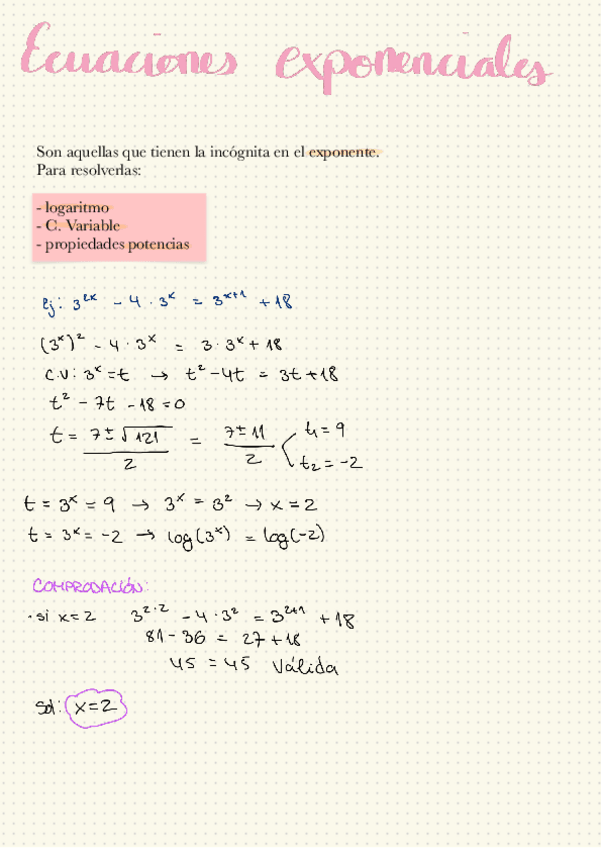 Ecuaciones exponenciales
Son aquellas que tienen la incógnita en el exponente.
Para resolverlas:
- logaritmo
- C. Variable
- propiedades potencias
ej: 3²ˣ - 4 · 3ˣ = 3ˣ⁺¹ + 18
(3ˣ)² - 4 · 3ˣ = 3 · 3ˣ + 18
C.V: 3ˣ = t → t² - 4t = 3t + 18
t² - 7t - 18 = 0
t = (7 ± √121)/2 = (7 ± 11)/2 t₁ = 9
t₂ = -2
t = 3ˣ = 9 → 3ˣ = 3² → x = 2
t = 3ˣ = -2 → log(3ˣ) = log(-2)
COMPROBACIÓN:
· si x = 2 3²·² - 4 · 3² = 3²⁺¹ + 18
81 - 36 = 27 + 18
45 = 45 Válida
Sol: x = 2